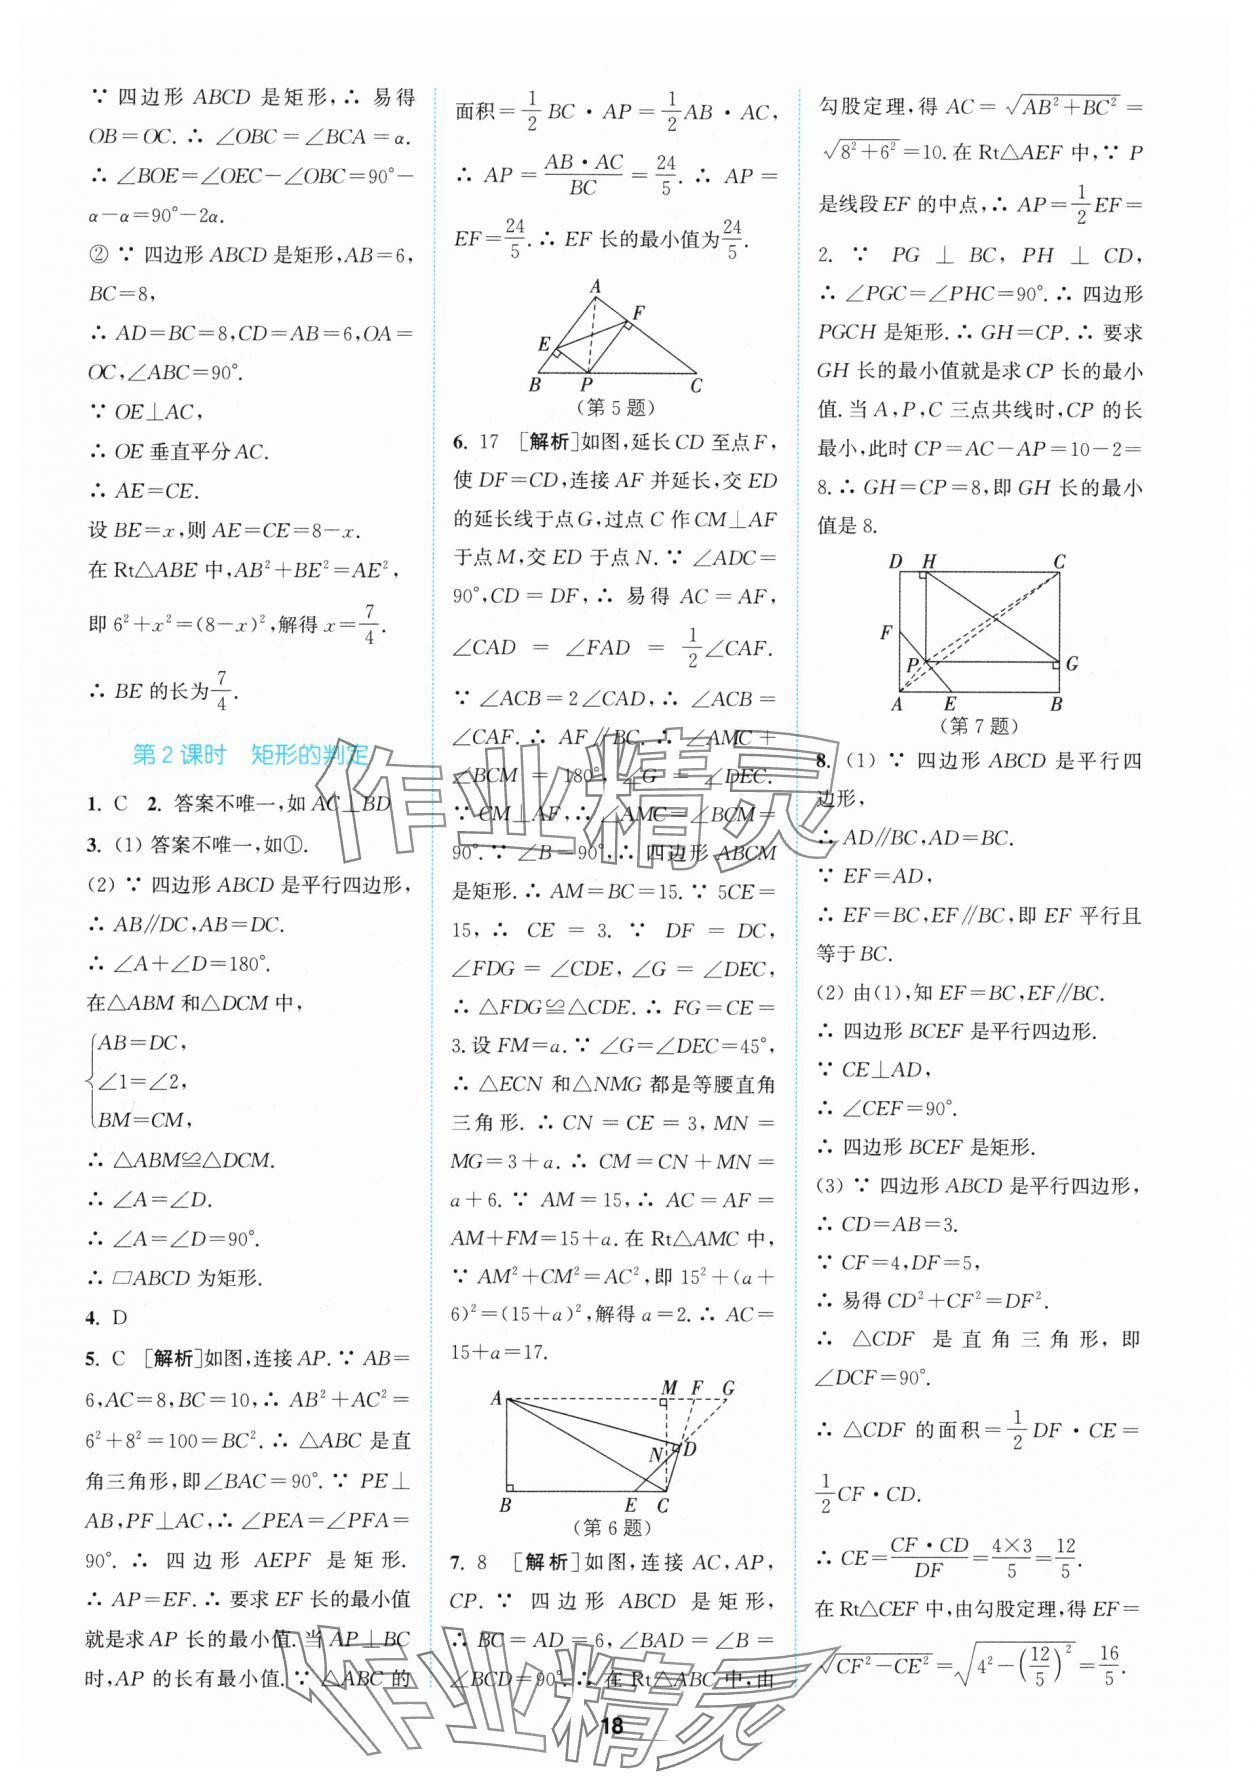 ∵ 四边形 ABCD 是矩形,∴ 易得
OB=OC. ∴ ∠OBC=∠BCA=α.
∴ ∠BOE=∠OEC-∠OBC=90°-
α-α=90°-2α.
② ∵ 四边形 ABCD 是矩形,AB=6,
BC=8,
∴ AD=BC=8,CD=AB=6,OA=
OC,∠ABC=90°.
∵ OE⊥AC,
∴ OE 垂直平分 AC.
∴ AE=CE.
设 BE=x,则 AE=CE=8-x.
在 Rt△ABE 中,AB²+BE²=AE²,
即 6²+x²=(8-x)²,解得 x=7/4.
∴ BE 的长为 7/4.
第 2 课时 矩形的判定
1. C 2. 答案不唯一,如 AC⊥BD
3. (1) 答案不唯一,如①.
(2) ∵ 四边形 ABCD 是平行四边形,
∴ AB∥DC,AB=DC.
∴ ∠A+∠D=180°.
在△ABM 和△DCM 中,
AB=DC,
∠1=∠2,
BM=CM,
∴ △ABM≌△DCM.
∴ ∠A=∠D.
∴ ∠A=∠D=90°.
∴ □ABCD 为矩形.
4. D
5. C [解析]如图,连接 AP. ∵ AB=
6,AC=8,BC=10,∴ AB²+AC²=
6²+8²=100=BC². ∴ △ABC 是直
角三角形,即∠BAC=90°. ∵ PE⊥
AB,PF⊥AC,∴ ∠PEA=∠PFA=
90°. ∴ 四边形 AEPF 是矩形.
∴ AP=EF. ∴ 要求 EF 长的最小值
就是求 AP 长的最小值. 当 AP⊥BC
时,AP 的长有最小值. ∵ △ABC 的
面积=1/2 BC·AP=1/2 AB·AC,
∴ AP=AB·AC/BC=24/5. ∴ AP=
EF=24/5. ∴ EF 长的最小值为 24/5.
A
F
E
B P C
(第 5 题)
6. 17 [解析]如图,延长 CD 至点 F,
使 DF=CD,连接 AF 并延长,交 ED
的延长线于点 G,过点 C 作 CM⊥AF
于点 M,交 ED 于点 N. ∵ ∠ADC=
90°,CD=DF,∴ 易得 AC=AF,
∠CAD=∠FAD=1/2∠CAF.
∵ ∠ACB=2∠CAD,∴ ∠ACB=
∠CAF. ∴ AF∥BC. ∴ ∠AMC+
∠BCM=180°,∠G=∠DEC.
∵ CM⊥AF,∴ ∠AMC=∠BCM=
90°. ∵ ∠B=90°,∴ 四边形 ABCM
是矩形. ∴ AM=BC=15. ∵ 5CE=
15,∴ CE=3. ∵ DF=DC,
∠FDG=∠CDE,∠G=∠DEC,
∴ △FDG≌△CDE. ∴ FG=CE=
3. 设 FM=a. ∵ ∠G=∠DEC=45°,
∴ △ECN 和△NMG 都是等腰直角
三角形. ∴ CN=CE=3,MN=
MG=3+a. ∴ CM=CN+MN=
a+6. ∵ AM=15,∴ AC=AF=
AM+FM=15+a. 在 Rt△AMC 中,
∵ AM²+CM²=AC²,即 15²+(a+
6)²=(15+a)²,解得 a=2. ∴ AC=
15+a=17.
A M F G
N D
B E C
(第 6 题)
7. 8 [解析]如图,连接 AC,AP,
CP. ∵ 四边形 ABCD 是矩形,
∴ BC=AD=6,∠BAD=∠B=
∠BCD=90°. ∴ 在 Rt△ABC 中,由
勾股定理,得 AC=√(AB²+BC²)=
√(8²+6²)=10. 在 Rt△AEF 中,∵ P
是线段 EF 的中点,∴ AP=1/2 EF=
2. ∵ PG⊥BC,PH⊥CD,
∴ ∠PGC=∠PHC=90°. ∴ 四边形
PGCH 是矩形. ∴ GH=CP. ∴ 要求
GH 长的最小值就是求 CP 长的最小
值. 当 A,P,C 三点共线时,CP 的长
最小,此时 CP=AC-AP=10-2=
8. ∴ GH=CP=8,即 GH 长的最小
值是 8.
D H C
F
P G
A E B
(第 7 题)
8. (1) ∵ 四边形 ABCD 是平行四
边形,
∴ AD∥BC,AD=BC.
∵ EF=AD,
∴ EF=BC,EF∥BC,即 EF 平行且
等于 BC.
(2) 由(1),知 EF=BC,EF∥BC.
∴ 四边形 BCEF 是平行四边形.
∵ CE⊥AD,
∴ ∠CEF=90°.
∴ 四边形 BCEF 是矩形.
(3) ∵ 四边形 ABCD 是平行四边形,
∴ CD=AB=3.
∵ CF=4,DF=5,
∴ 易得 CD²+CF²=DF².
∴ △CDF 是直角三角形,即
∠DCF=90°.
∴ △CDF 的面积=1/2 DF·CE=
1/2 CF·CD.
∴ CE=CF·CD/DF=4×3/5=12/5.
在 Rt△CEF 中,由勾股定理,得 EF=
√(CF²-CE²)=√(4²-(12/5)²)=16/5.
作业精灵
作业精灵
18